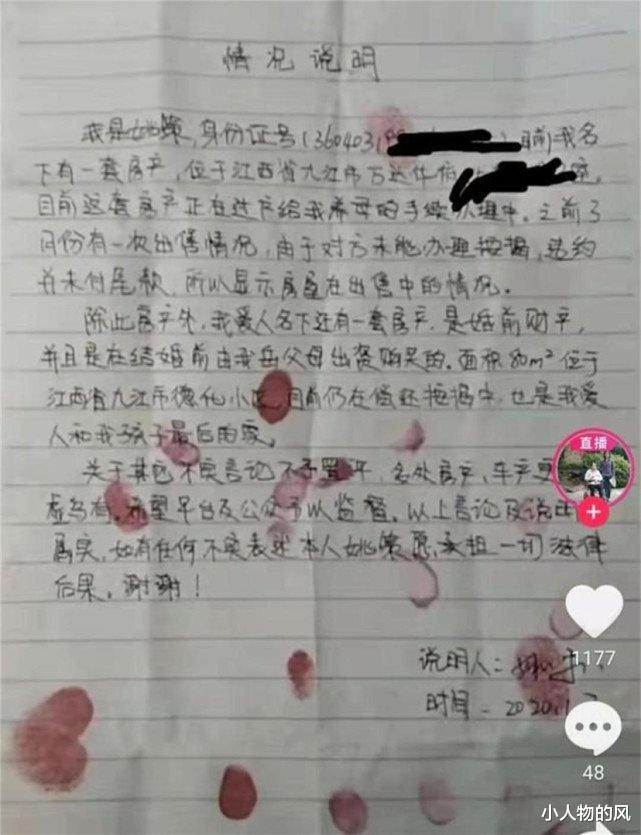 情况说明
我是姚策,身份证号(360403199 )目前我名
下有一套房产,位于江西省九江市万达华府 室,
目前这套房产正在过户给我养母的手续办理中。之前3
月份有一次出售情况,由于对方未能办理按揭,违约
并未付尾款,所以显示房屋在出售中的情况。
除此房产外,我爱人名下还有一套房产,是婚前财产,
并且是在结婚前由我岳父母出资购买的。面积80m²位于
江西省九江市德化小区,目前仍在偿还按揭中,也是我爱
人和我孩子最后的家。
关于其它不实言论不予置评,各处房产,车产更
虚乌有。希望平台及公众予以监督。以上言论及说
属实,如有任何不实表述本人姚策愿承担一切法律
后果,谢谢!
说明人:
时间 - 2020.11.
直播
1177
48
小人物的风